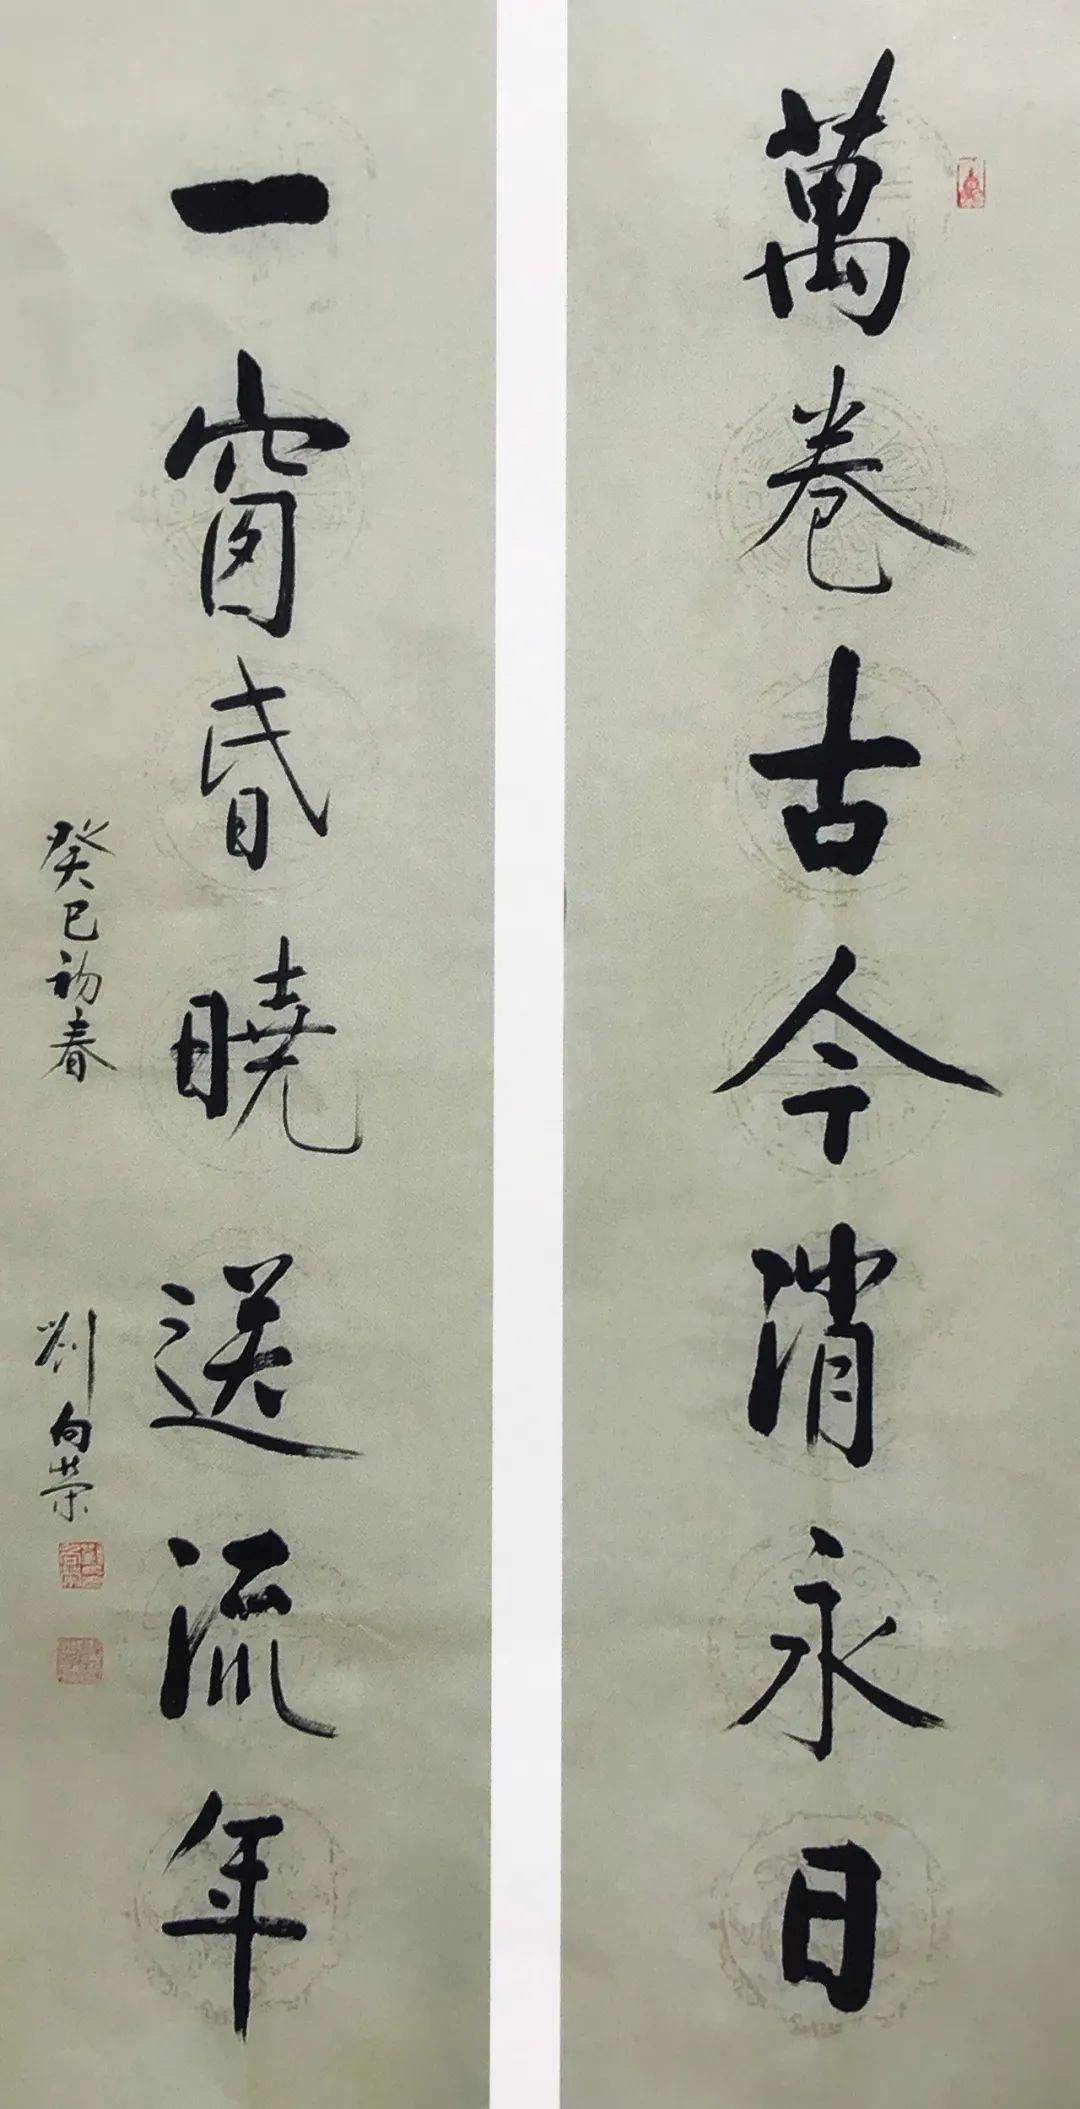 萬卷古今消永日
一窗昏曉送流年
癸巳初春
劉向榮